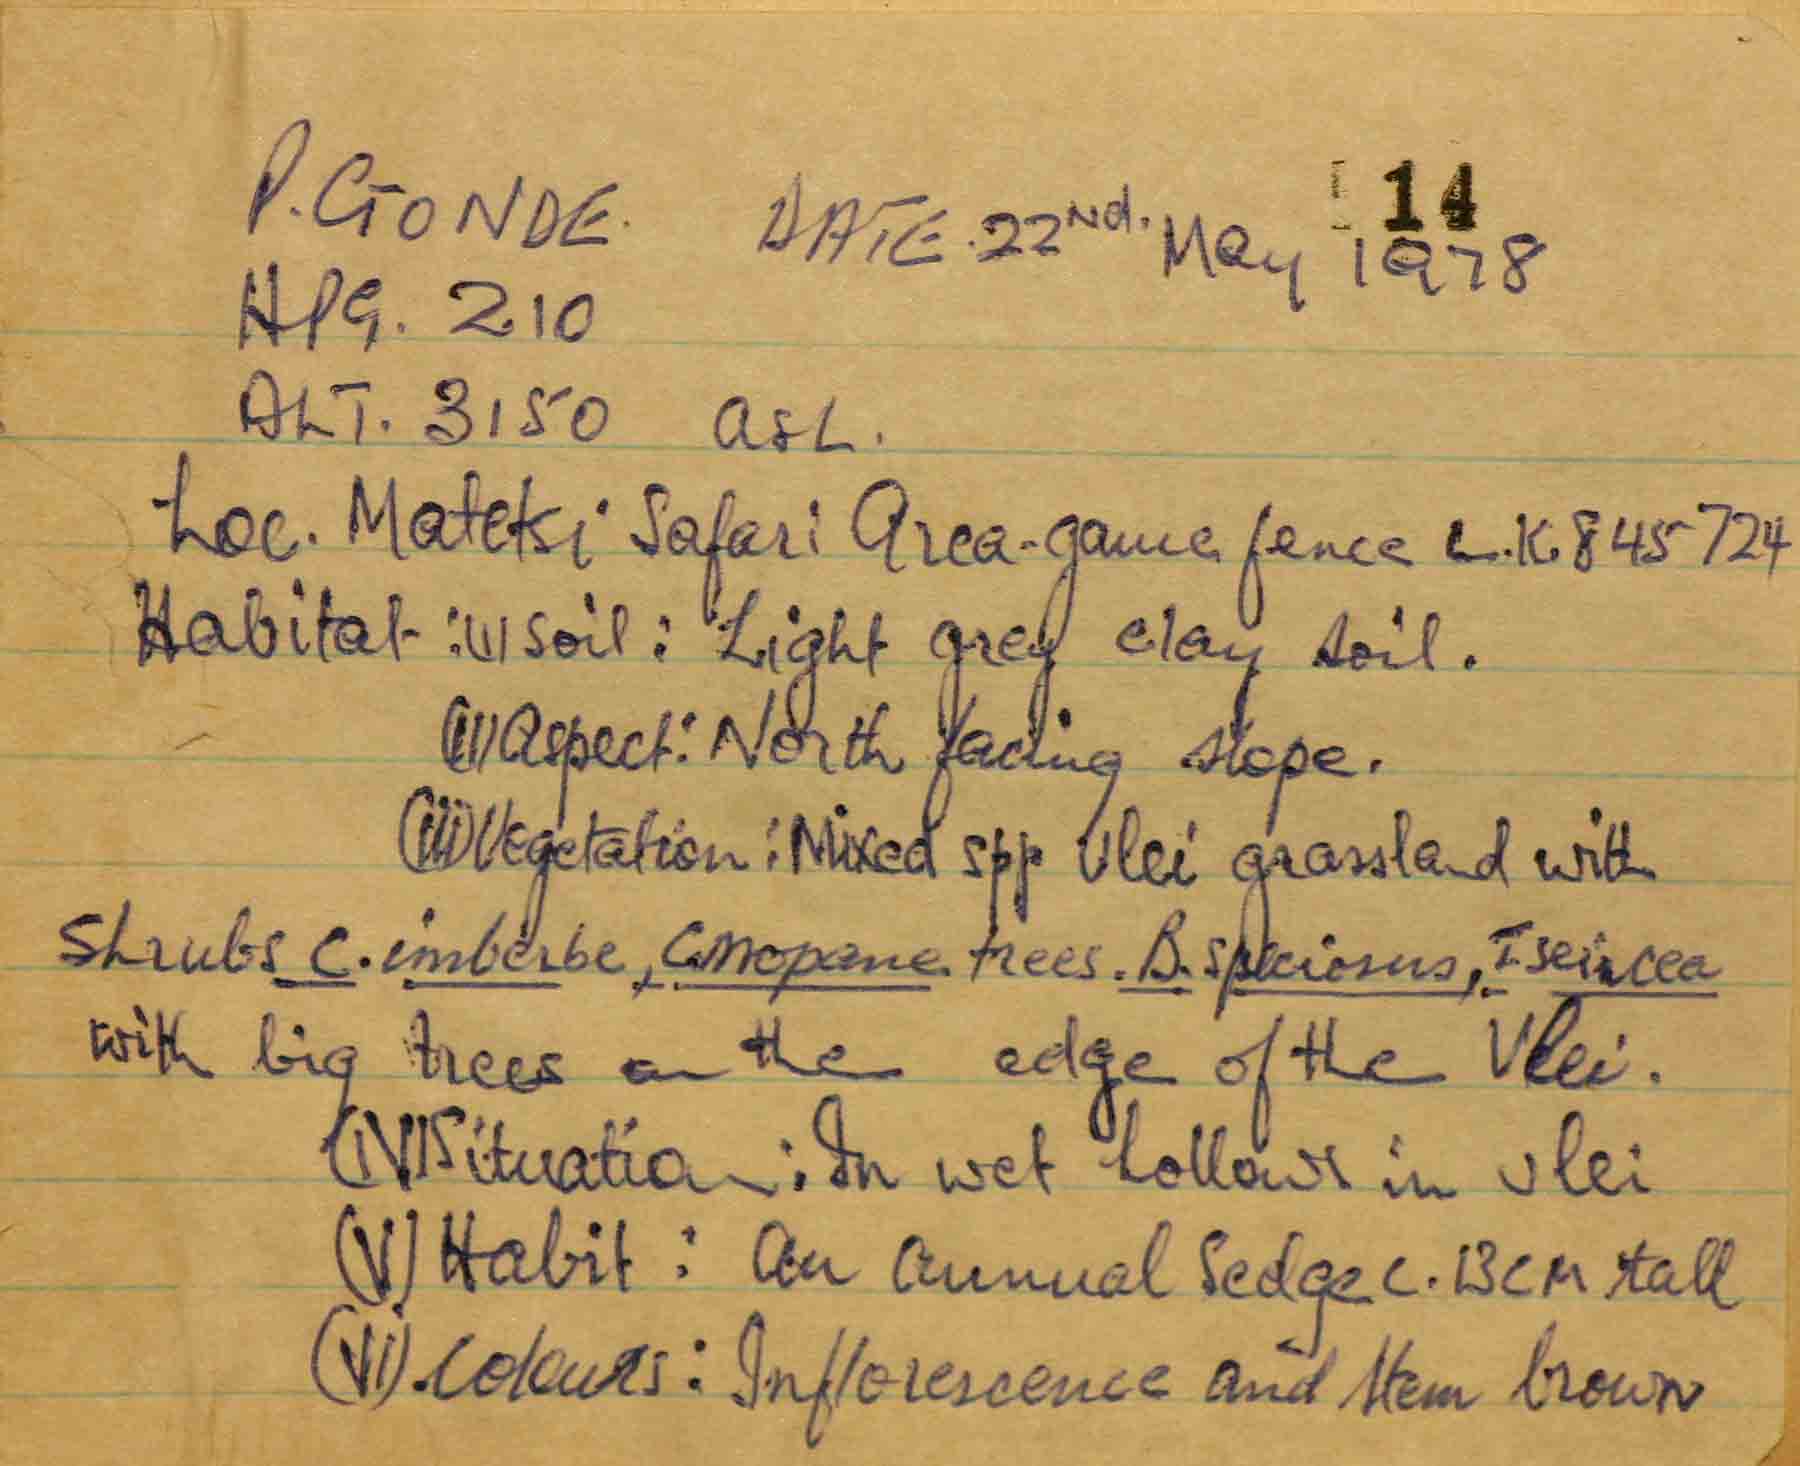 14
P. GONDE. DATE. 22nd. May 1978
HPG. 210
ALT. 3150 asL.
Loc. Matetsi Safari Area-game fence L.K. 845724
Habitat: (i) Soil: Light grey clay soil.
(ii) Aspect: North facing slope.
(iii) Vegetation: Mixed spp vlei grassland with
Shrubs C. imberbe, C. mopane trees. B. speciosus, I sericea
with big trees on the edge of the Vlei.
(iV) Situation: In wet hollows in vlei
(V) Habit: An annual Sedge c. 13cm tall
(Vi). Colours: Inflorescence and stem brown